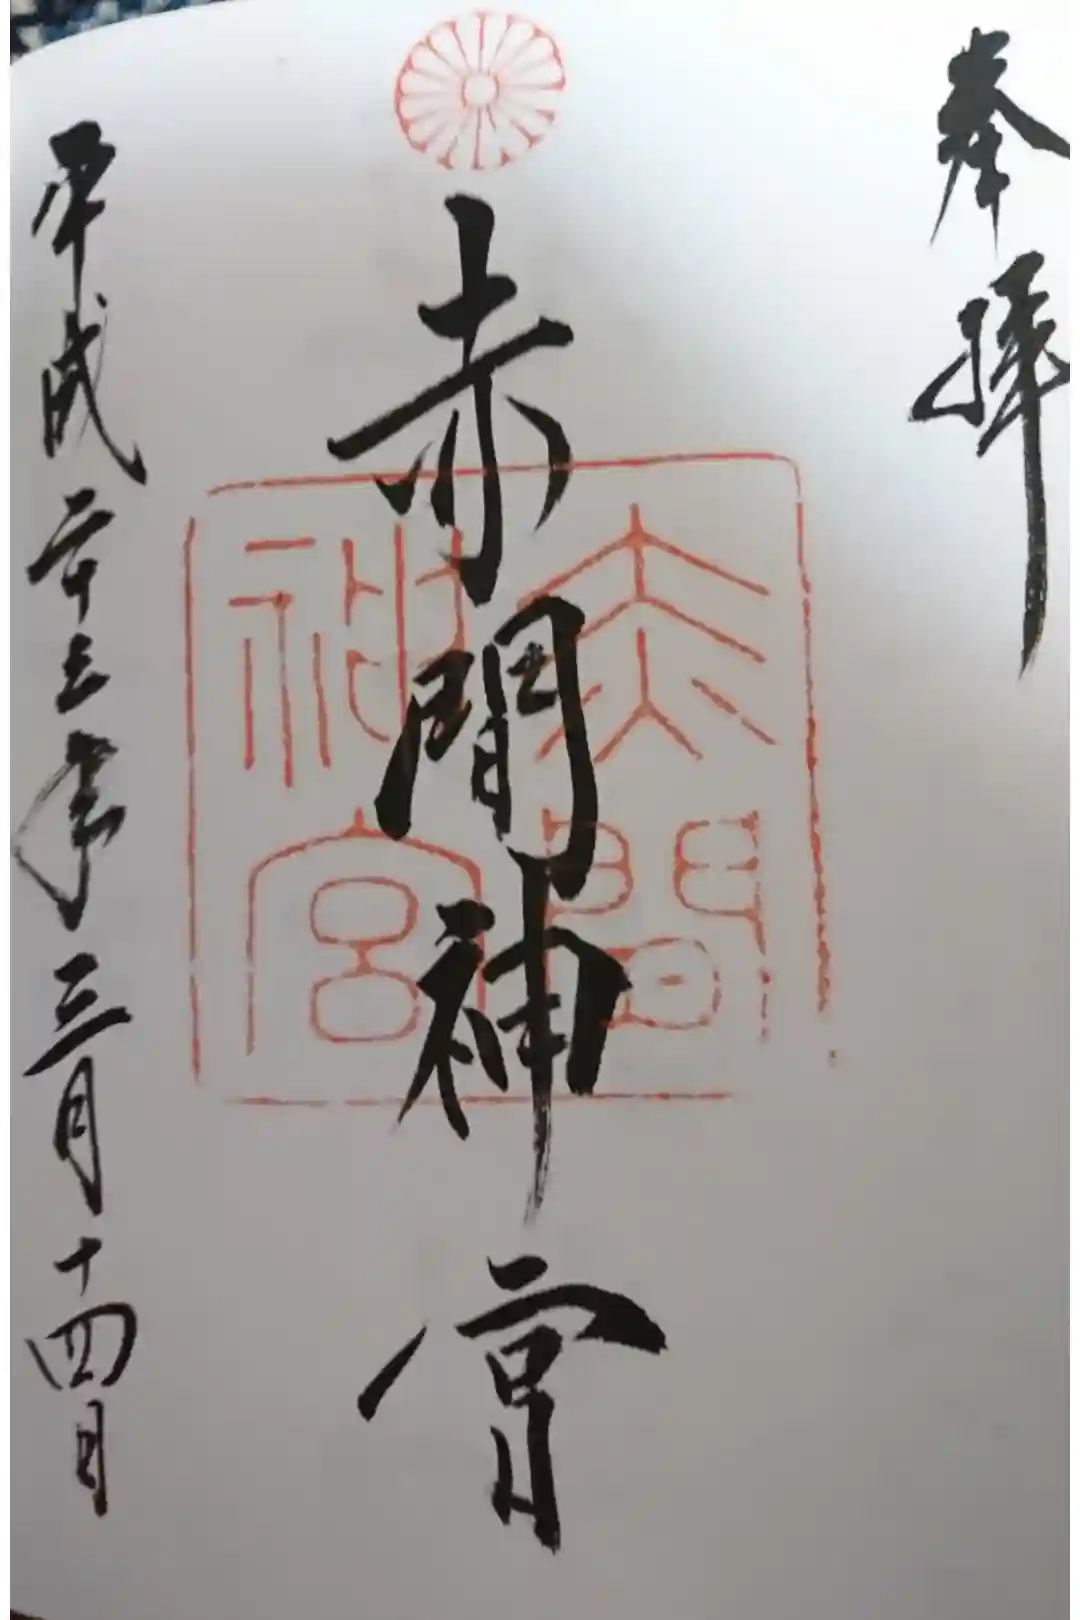 奉拝
赤間神宮
赤間
神宮
平成二十五年三月十四日